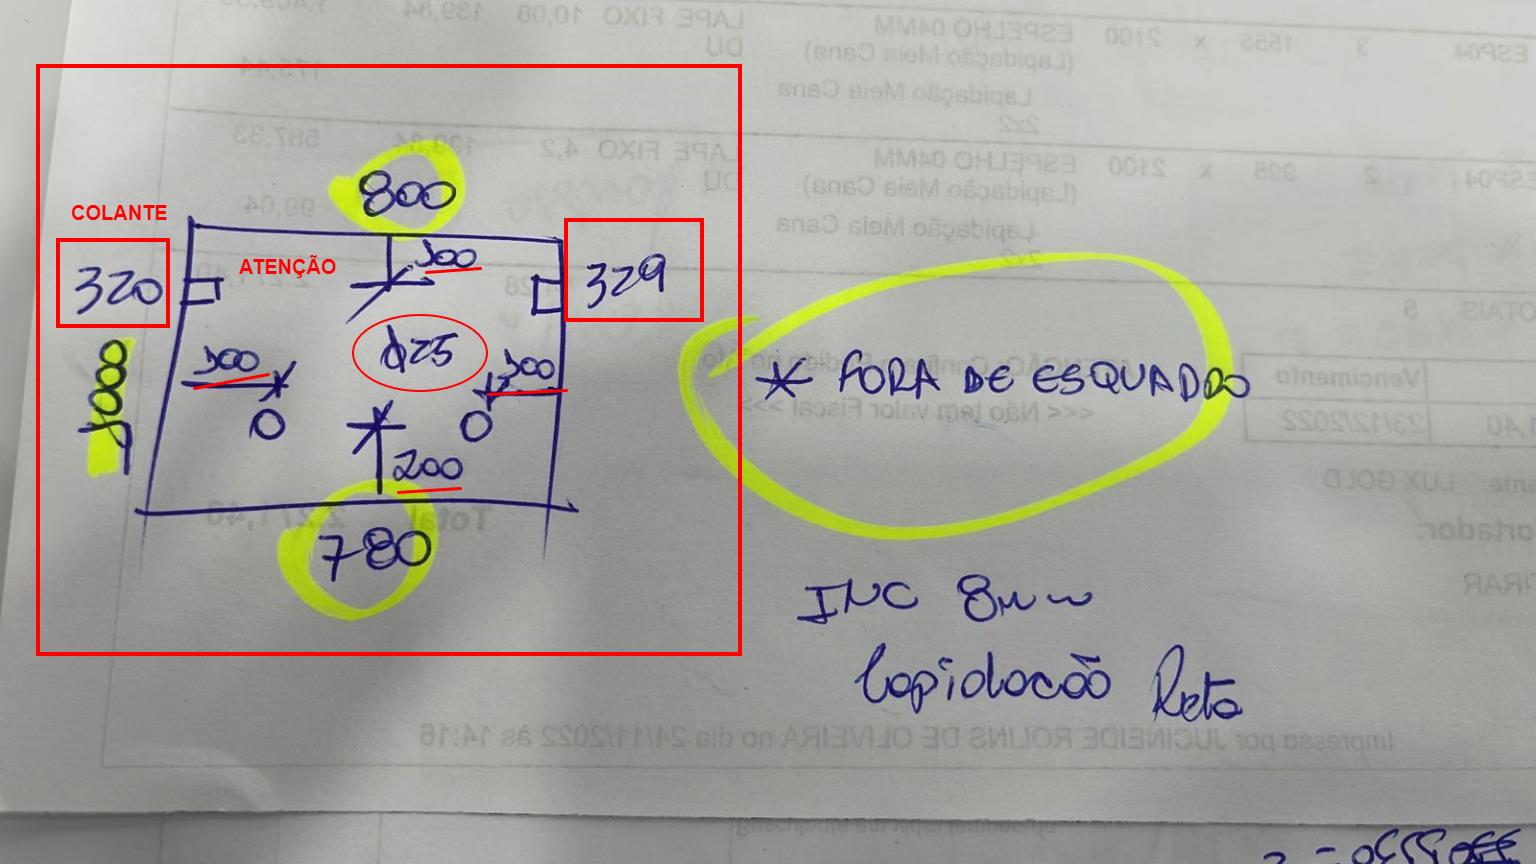 800
COLANTE
ATENÇÃO
320
329
300
300
φ25
300
1000
200
780
* FORA DE ESQUADRO
INC 8mm
Lapidação Reta
ESP04 3 1555 x 2100 ESPELHO 04MM LAPE FIXO 10,08 139,84
(Lapidação Meia Cana) DU
Lapidação Meia Cana
2x2
ESP04 2 995 x 2100 ESPELHO 04MM LAPE FIXO 4,2 139,84 587,33
(Lapidação Meia Cana) DU 99,04
Lapidação Meia Cana
2x2
TOTAIS 5
Vencimento
23/12/2022
<<< Não tem valor Fiscal >>>
LUX GOLD
Total 2.271,40
Impresso por JUCINEIDE ROLINS DE OLIVEIRA no dia 24/11/2022 às 14:16